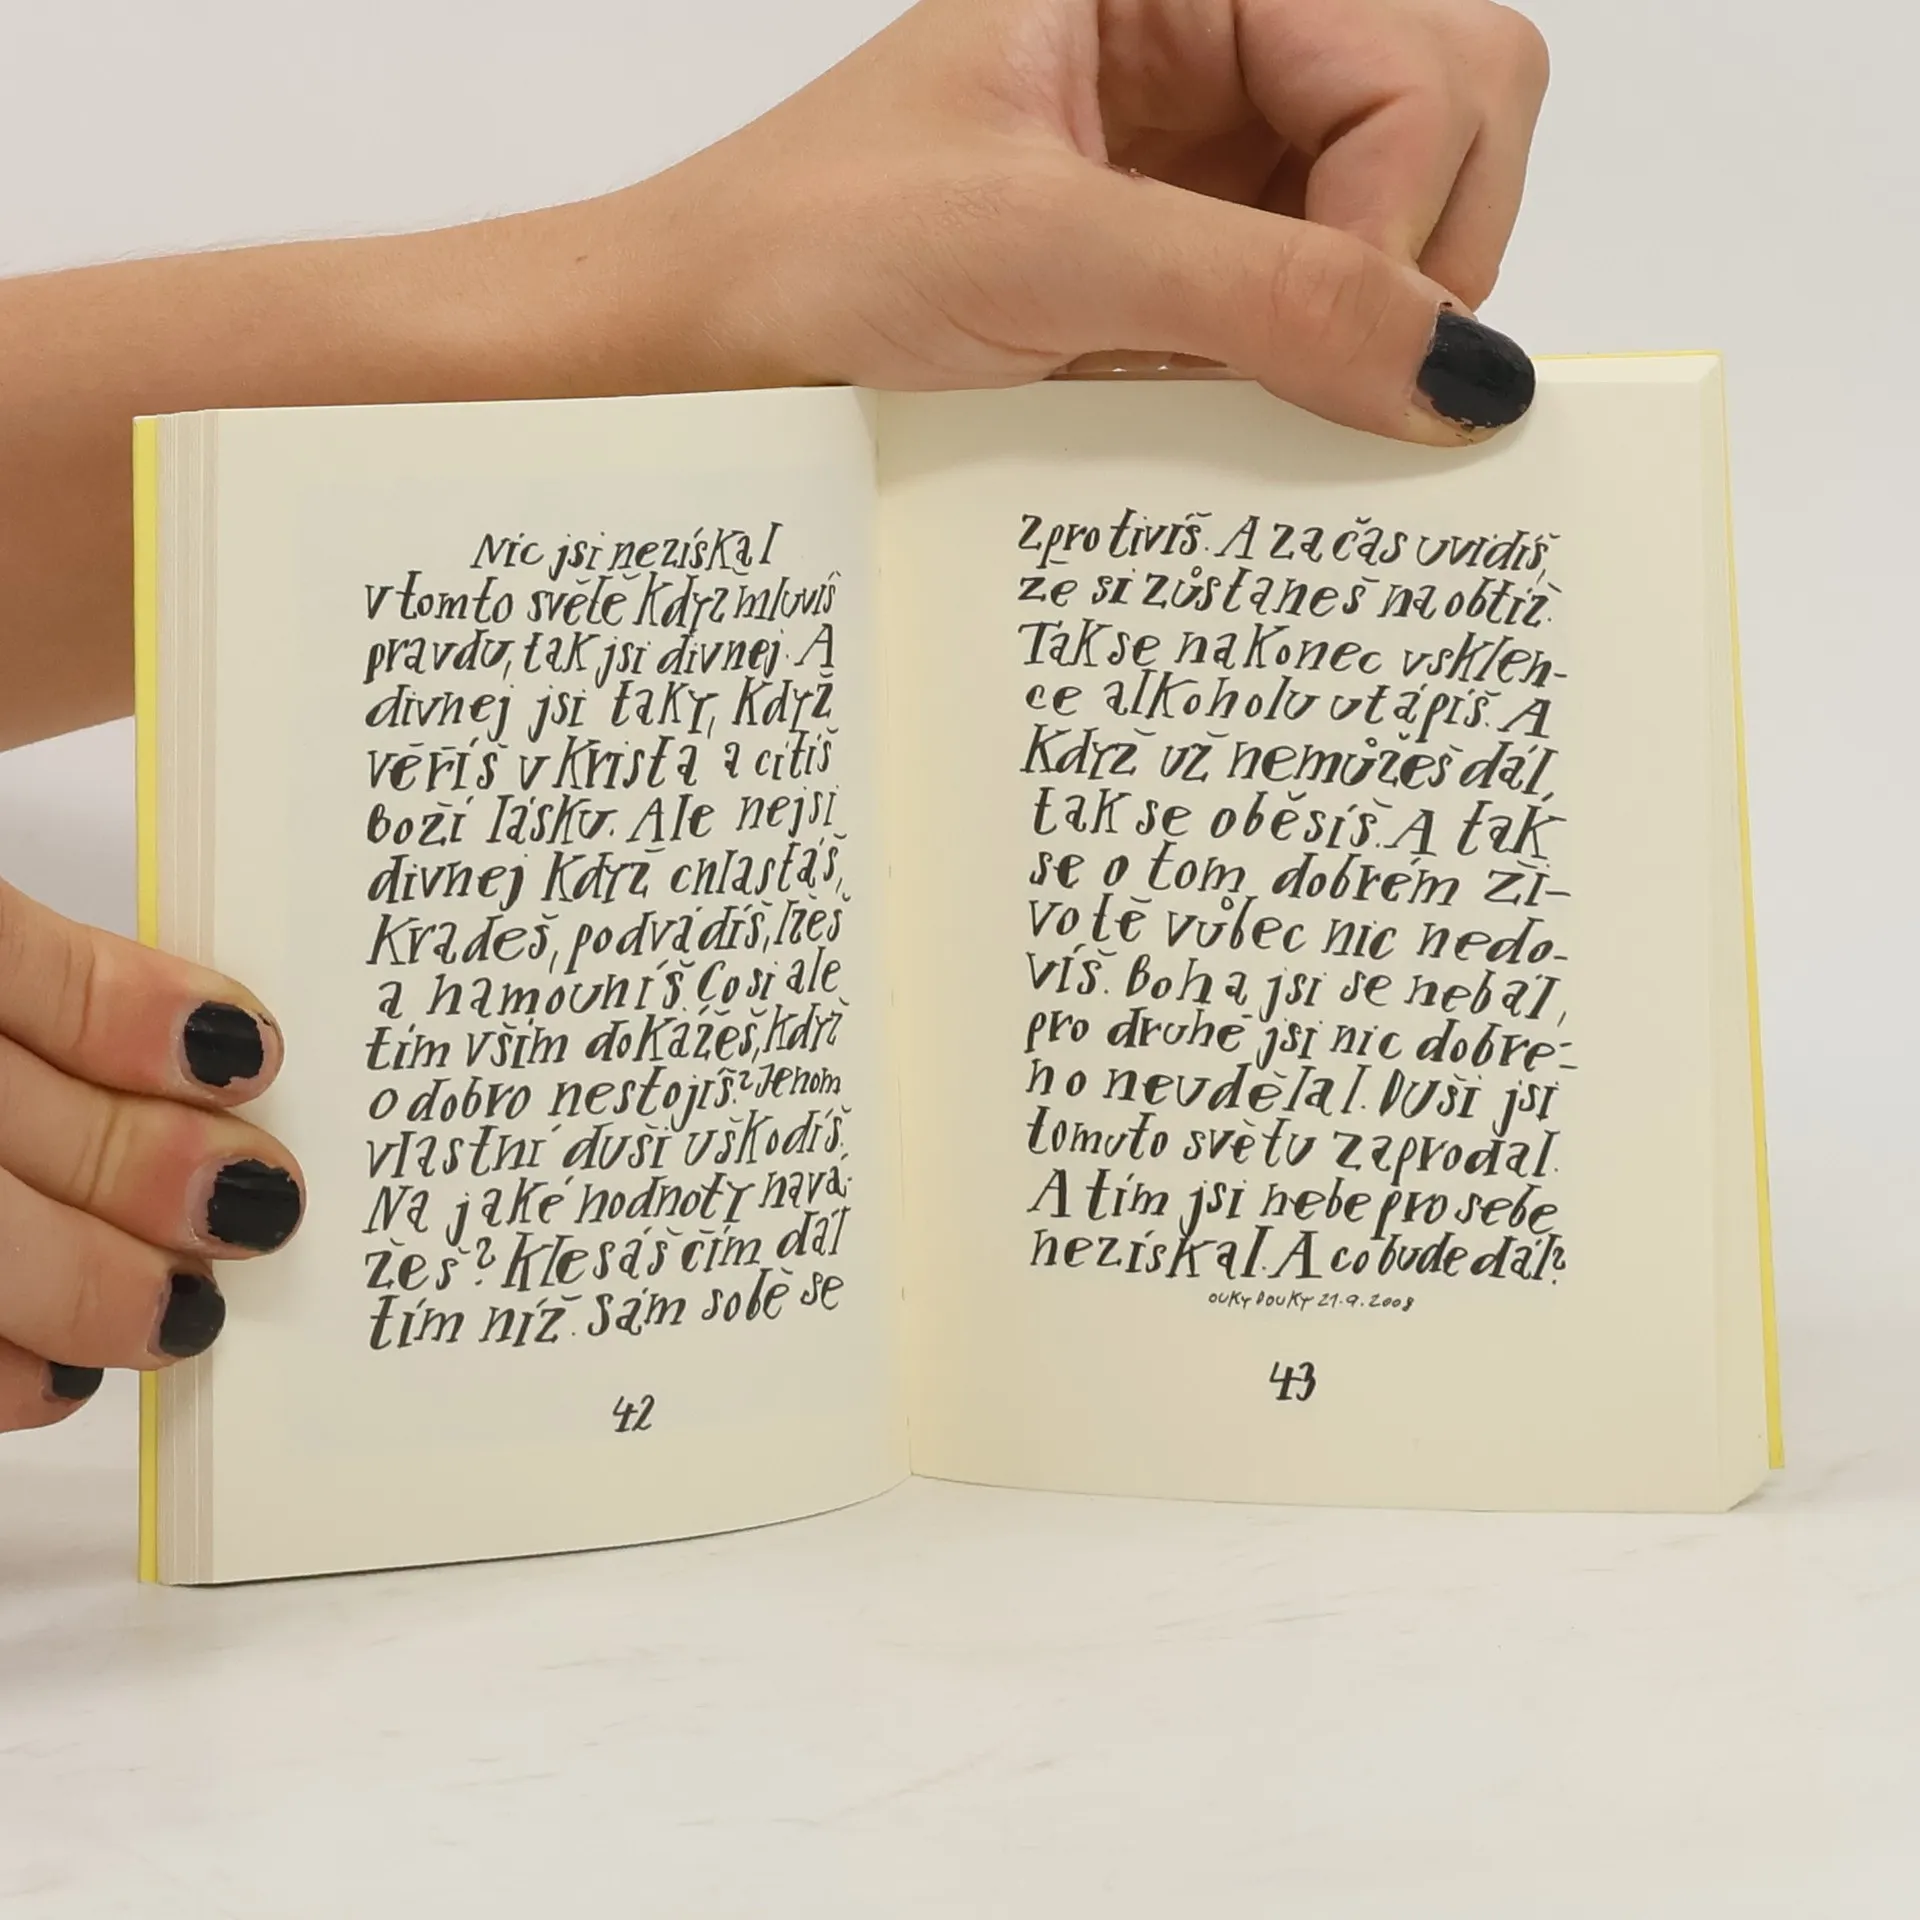 Nic jsi nezískal
v tomto světě když mluvíš
pravdu, tak jsi divnej. A
divnej jsi taky, když
věříš v Krista a cítíš
Boží lásku. Ale nejsi
divnej když chlastáš,
kradeš, podvádíš, lžeš
a hamouníš. Co si ale
tím vším dokážeš, když
o dobro nestojíš? Jenom
vlastní duši uškodíš.
Na jaké hodnoty navá-
žeš? Klesáš čím dál
tím níž. Sám sobě se
42
zprotivíš. A za čas uvidíš,
že si zůstaneš na obtíž.
Tak se nakonec v sklen-
ce alkoholu utápíš. A
když už nemůžeš dál,
tak se oběsíš. A tak
se o tom dobrém ži-
votě vůbec nic nedo-
víš. Boha jsi se nebál,
pro druhé jsi nic dobré-
ho neudělal. Duši jsi
tomuto světu zaprodal.
A tím jsi nebe pro sebe
nezískal. A co bude dál?
OUKY DOUKY 21.9.2008
43